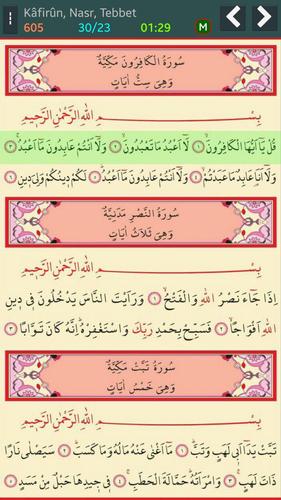 Kâfirûn, Nasr, Tebbet
605 30/23 01:29 M
سُورَةُ الْكَافِرُونَ مَكِّيَّةٌ
وَهِيَ سِتُّ اٰيَاتٍ
بِسْمِ اللّٰهِ الرَّحْمٰنِ الرَّحِيمِ
قُلْ يَٓا اَيُّهَا الْكَافِرُونَۙ ﴿١﴾ لَٓا اَعْبُدُ مَا تَعْبُدُونَۙ ﴿٢﴾ وَلَٓا اَنْتُمْ عَابِدُونَ مَٓا اَعْبُدُۚ ﴿٣﴾
وَلَٓا اَنَا۬ عَابِدٌ مَا عَبَدْتُمْۙ ﴿٤﴾ وَلَٓا اَنْتُمْ عَابِدُونَ مَٓا اَعْبُدُۜ ﴿٥﴾ لَكُمْ دِينُكُمْ وَلِيَ دِينِ ﴿٦﴾
سُورَةُ النَّصْرِ مَدَنِيَّةٌ
وَهِيَ ثَلَاثُ اٰيَاتٍ
بِسْمِ اللّٰهِ الرَّحْمٰنِ الرَّحِيمِ
اِذَا جَٓاءَ نَصْرُ اللّٰهِ وَالْفَتْحُۙ ﴿١﴾ وَرَاَيْتَ النَّاسَ يَدْخُلُونَ فٖي دٖينِ
اللّٰهِ اَفْوَاجًاۙ ﴿٢﴾ فَسَبِّحْ بِحَمْدِ رَبِّكَ وَاسْتَغْفِرْهُۜ اِنَّهُ كَانَ تَوَّابًا ﴿٣﴾
سُورَةُ تَبَّتْ مَكِّيَّةٌ
وَهِيَ خَمْسُ اٰيَاتٍ
بِسْمِ اللّٰهِ الرَّحْمٰنِ الرَّحِيمِ
تَبَّتْ يَدَٓا اَبٖي لَهَبٍ وَتَبَّۜ ﴿١﴾ مَٓا اَغْنٰى عَنْهُ مَالُهُ وَمَا كَسَبَۜ ﴿٢﴾ سَيَصْلٰى نَارًا
ذَاتَ لَهَبٍۚ ﴿٣﴾ وَامْرَاَتُهُۜ حَمَّالَةَ الْحَطَبِۚ ﴿٤﴾ فٖي جٖيدِهَا حَبْلٌ مِنْ مَسَدٍ ﴿٥﴾